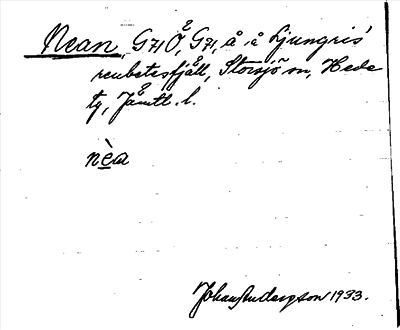 Nean, G71Ö, G71, å i Ljungris'
renbetesfjäll, Storsjö sn, Hede
tg, Jämtl. l.
nèa
Johan Anderson 1933.